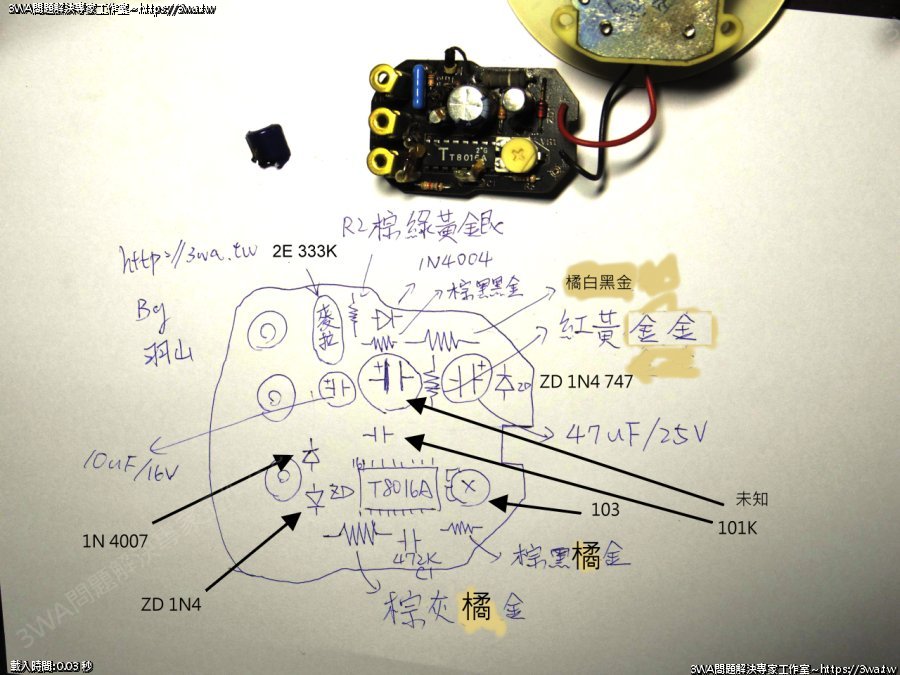 3WA問題解決專家工作室~https://3wa.tw
3WA問題解決專家工作室~https://3wa.tw
2*G
T T8016A
R2棕綠黃銀
http://3wa.tw
2E 333K
1N4004
棕黑黑金
橘白黑金
By
羽山
麥拉
紅黃金金
ZD
ZD 1N4 747
10uF/16V
47uF/25V
16
ZD
T8016A
未知
103
101K
1N 4007
472K
C1
棕黑橘金
ZD 1N4
棕灰橘金
3WA問題解決專家
載入時間: 0.03 秒
3WA問題解決專家工作室~https://3wa.tw